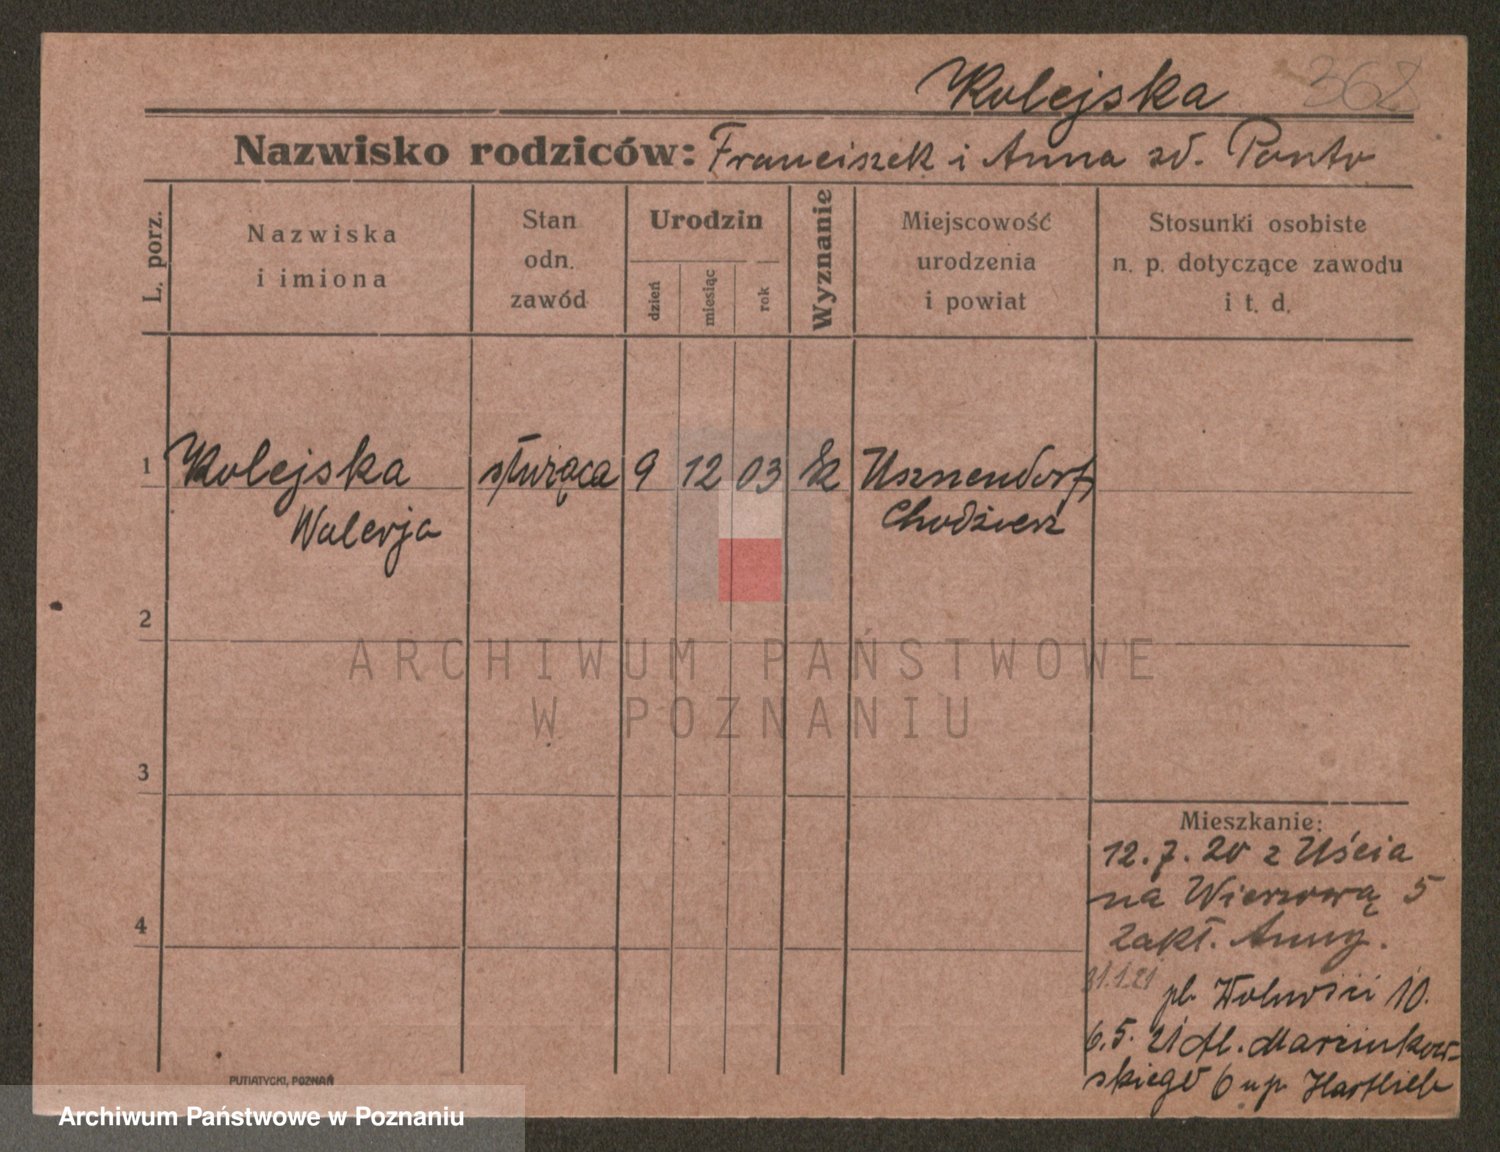 Kolejska 368
Nazwisko rodziców: Franciszek i Anna zd. Ponto
L. porz.
Nazwiska
i imiona
Stan
odn.
zawód
Urodzin
dzień
miesiąc
rok
Wyznanie
Miejscowość
urodzenia
i powiat
Stosunki osobiste
n. p. dotyczące zawodu
i t. d.
1 Kolejska służąca 9 12 03 rk Usznendorf
Walerja Chodzież
2
ARCHIWUM PAŃSTWOWE
W POZNANIU
3
4
Mieszkanie:
12.7.20 z Uścia
na Wierzową 5
Zakł. Anny.
31.1.21 pl. Wolności 10.
6.5.21 Al. Marcinkow-
skiego 6 u p. Hartlieb
PUTIATYCKI, POZNAŃ
Archiwum Państwowe w Poznaniu